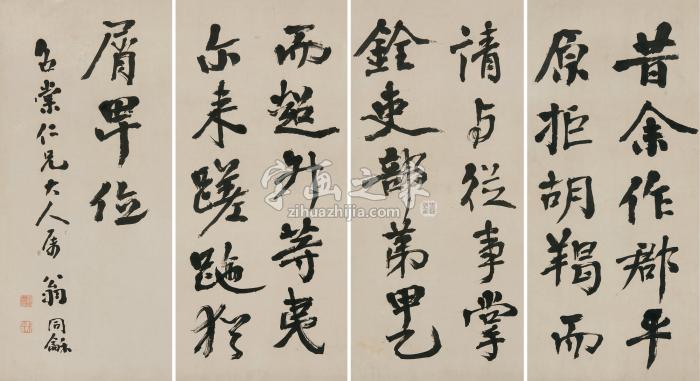 昔余作郡平
原拒胡羯而
請与從事掌
銓吏部弟甲乙
而超升等夷
尔来蹉跎犹
屑卑位
棠仁兄大人属 翁同龢
字画之家
zihuazhijia.com